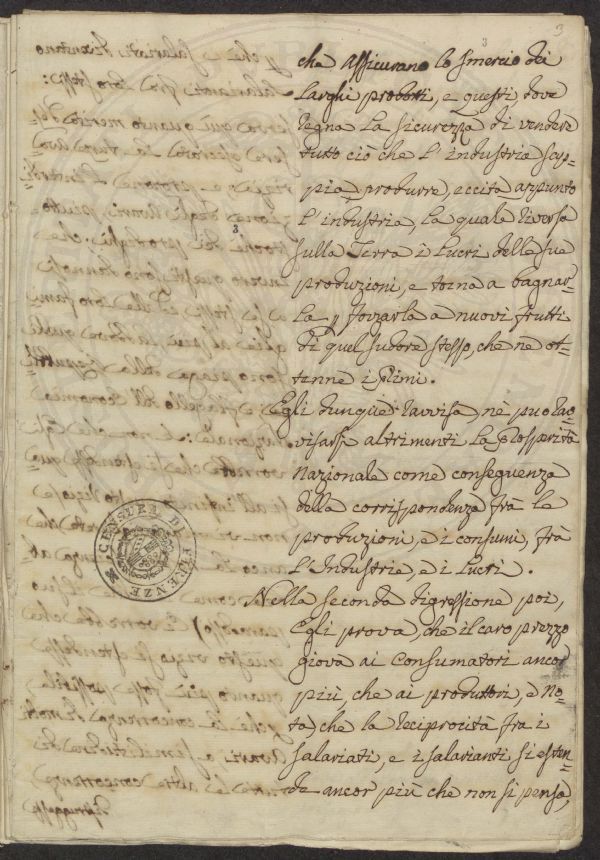 3
3
che assicurano lo smercio dei
larghi prodotti, e questi, dove
regna la sicurezza di vendere
tutto ciò che l'industria sap-
pia produrre, eccita appunto
l'industria, la quale riversa
sulla Terra i lucri delle sue
produzioni, e torna a bagnar-
la, forzarla a nuovi frutti
di quel sudore stesso, che ne ot-
tenne i primi.
Egli dunque ravvisa, nè può rav-
visarsi altrimenti la prosperità
Nazionale come conseguenza
della corrispondenza frà le
produzioni, e i consumi, frà
l'Industrie, e i Lucri.
Nella seconda digressione poi,
Egli prova, che il caro prezzo
giova ai Consumatori ancor
più, che ai produttori, e no-
ta, che la reciprocità fra i
salariati, e i salarianti si esten-
de ancor più che non si pensa,
3
CENSTEL DI FIRENZE